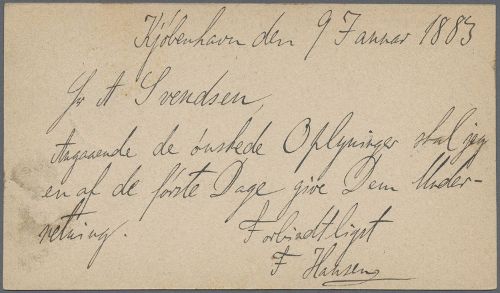 Kjøbenhavn den 9 Januar 1883
Hr A Svendsen,
Angaaende de önskede Oplysninger skal jeg
en af de förste Dage give Dem Under-
retning.
Forbindtligst
F Hansen